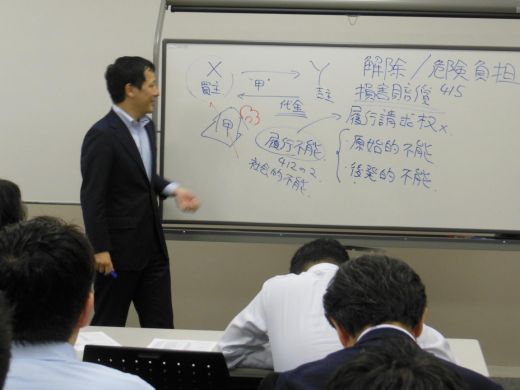 X Y 解除／危険負担
買主 "甲" 売主 損害賠償 415
代金
甲 履行請求権x
履行不能 原始的不能
412の2 後発的不能
社会的不能